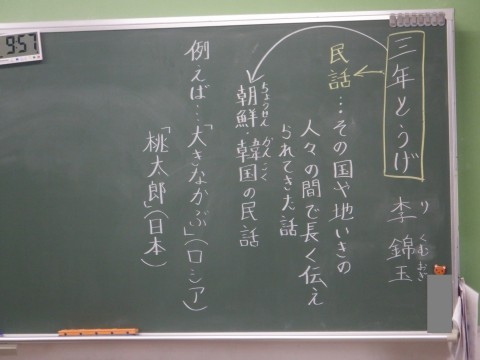 三年とうげ 李錦玉
り くむおぎ
民話…その国や地いきの
人々の間で長く伝え
られてきた話
朝鮮・韓国の民話
ちょうせん かんこく
例えば…「大きなかぶ」(ロシア)
「桃太郎」(日本)
9:57